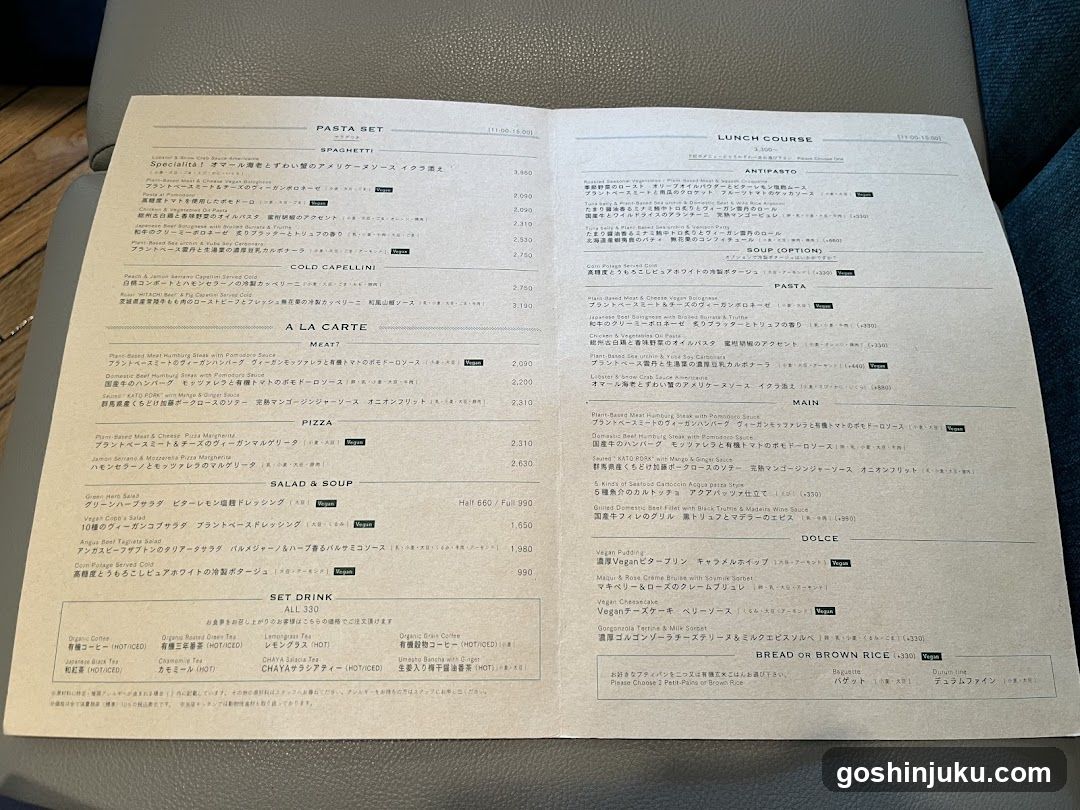 PASTA SET
[11:00-15:00]
SPAGHETTI
Lobster & Snow Crab Sauce Americaine
Specialità! オマール海老とずわい蟹のアメリケーヌソース イクラ添え
3,850
Plant-Based Meat & Cheese Vegan Bolognese
プラントベースミート&チーズのヴィーガンボロネーゼ Vegan 2,090
Pasta al Pomodoro
高糖度トマトを使用したポモドーロ Vegan 2,090
Chicken & Vegetables Oil Pasta
総州古白鶏と香味野菜のオイルパスタ 蜜柑胡椒のアクセント 2,310
Japanese Beef Bolognese with Broiled Burrata & Truffle
和牛のクリーミーボロネーゼ 炙りブラッターとトリュフの香り 2,530
Plant-Based Sea urchin & Yuba Soy Carbonara
プラントベース雲丹と生湯葉の濃厚豆乳カルボナーラ Vegan 2,750
COLD CAPELLINI
Peach & Jamon Serrano Capellini Served Cold
白桃コンポートとハモンセラーノの冷製カッペリーニ 2,750
Roast "HITACHI Beef" & Fig Capellini Served Cold
茨城県産常陸牛もも肉のローストビーフとフレッシュ無花果の冷製カッペリーニ 和風山椒ソース 3,190
A LA CARTE
MEAT?
Plant-Based Meat Humburg Steak with Pomodoro Sauce
プラントベースミートのヴィーガンハンバーグ ヴィーガンモッツァレラと有機トマトのポモドーロソース [小麦・大豆] Vegan 2,090
Domestic Beef Humburg Steak with Pomodoro Sauce
国産牛のハンバーグ モッツァレラと有機トマトのポモドーロソース [卵・乳・小麦・大豆・牛肉] 2,200
Sauted "KATO PORK" with Mango & Ginger Sauce
群馬県産くちどけ加藤ポークロースのソテー 完熟マンゴージンジャーソース オニオンフリット 2,310
PIZZA
Plant-Based Meat & Cheese Pizza Margherita
プラントベースミート&チーズのヴィーガンマルゲリータ [小麦・大豆] Vegan 2,310
Jamon Serrano & Mozzerella Pizza Margherita
ハモンセラーノとモッツァレラのマルゲリータ [乳・小麦・大豆・豚肉] 2,630
SALAD & SOUP
Green Herb Salad
グリーンハーブサラダ ビターレモン塩麹ドレッシング [大豆] Vegan Half 660 / Full 990
Vegan Cobb's Salad
10種のヴィーガンコブサラダ プラントベースドレッシング [大豆・くるみ] Vegan 1,650
Angus Beef Tagliata Salad
アンガスビーフザブトンのタリアータサラダ パルメジャーノ&ハーブ香るバルサミコソース [乳・小麦・大豆・くるみ・牛肉・アーモンド] 1,980
Corn Potage Served Cold
高糖度とうもろこしピュアホワイトの冷製ポタージュ [大豆・アーモンド] Vegan 990
SET DRINK
ALL 330
お食事をお召し上がりのお客様はこちらの価格でご注文頂けます
Organic Coffee
有機コーヒー (HOT/ICED)
Organic Roasted Green Tea
有機三年番茶 (HOT/ICED)
Lemongrass Tea
レモングラス (HOT)
Organic Grain Coffee
有機穀物コーヒー (HOT/ICED) [小麦]
Japanese Black Tea
和紅茶 (HOT/ICED)
Chamomile Tea
カモミール (HOT)
CHAYA Salacia Tea
CHAYAサラシアティー (HOT/ICED)
Umesho Bancha with Ginger
生姜入り梅干醤油番茶 (HOT) [小麦・大豆]
LUNCH COURSE
[11:00-15:00]
3,300~
ANTIPASTO
Roasted Seasonal Vegetables / Plant-Based Meat & Squash Croquette
季節野菜のロースト オリーブオイルパウダーとビターレモン塩麹ムース
プラントベースミートと南瓜のクロケット フルーツトマトのケッカソース Vegan
Tuna belly & Plant-Based Sea urchin & Domestic Beef & Wild Rice Arancini
たまり醤油香るミナミ鮪中トロ炙りとヴィーガン雲丹のロール
国産牛とワイルドライスのアランチーニ 完熟マンゴーピュレ (+550)
Tuna belly & Plant-Based Sea urchin & Venison Patty
たまり醤油香るミナミ鮪中トロ炙りとヴィーガン雲丹のロール
北海道産蝦夷鹿のパティ 無花果のコンフィチュール
SOUP (OPTION)
Corn Potage Served Cold
高糖度とうもろこしピュアホワイトの冷製ポタージュ [大豆・アーモンド] (+330) Vegan
PASTA
Plant-Based Meat & Cheese Vegan Bolognese
プラントベースミート&チーズのヴィーガンボロネーゼ Vegan
Japanese Beef Bolognese with Broiled Burrata & Truffle
和牛のクリーミーボロネーゼ 炙りブラッターとトリュフの香り (+330)
Chicken & Vegetables Oil Pasta
総州古白鶏と香味野菜のオイルパスタ 蜜柑胡椒のアクセント (+330)
Plant-Based Sea urchin & Yuba Soy Carbonara
プラントベース雲丹と生湯葉の濃厚豆乳カルボナーラ (+440) Vegan
Lobster & Snow Crab Sauce Americaine
オマール海老とずわい蟹のアメリケーヌソース イクラ添え (+880)
MAIN
Plant-Based Meat Humburg Steak with Pomodoro Sauce
プラントベースミートのヴィーガンハンバーグ ヴィーガンモッツァレラと有機トマトのポモドーロソース [小麦・大豆] Vegan
Domestic Beef Humburg Steak with Pomodoro Sauce
国産牛のハンバーグ モッツァレラと有機トマトのポモドーロソース [卵・乳・小麦・大豆・牛肉]
Sauted "KATO PORK" with Mango & Ginger Sauce
群馬県産くちどけ加藤ポークロースのソテー 完熟マンゴージンジャーソース オニオンフリット
5 Kinds of Seafood Cartoccin Acqua pazza Style
5種魚介のカルトッチョ アクアパッツァ仕立て [大豆] (+330)
Grilled Domestic Beef Fillet with Black Truffle & Madeira Wine Sauce
国産牛フィレのグリル 黒トリュフとマデラーのエピス [乳・牛肉] (+990)
DOLCE
Vegan Pudding
濃厚Veganビタープリン キャラメルホイップ [大豆・アーモンド] Vegan
Maqui & Rose Crème Brulee with Soymilk Sorbet
マキベリー&ローズのクレームブリュレ [卵・乳・大豆・アーモンド]
Vegan Cheesecake
Veganチーズケーキ ベリーソース [くるみ・大豆・アーモンド] Vegan
Gorgonzola Terrine & Milk Sorbet
濃厚ゴルゴンゾーラチーズテリーヌ&ミルクエピスソルベ [卵・乳・小麦・くるみ・ごま] (+330)
BREAD OR BROWN RICE (+330) Vegan
お好きなプティパンを二つ又は有機玄米ごはんお選び下さい。
Please Choose 2 Petit-Pains or Brown Rice
Baguette
バゲット [小麦・大豆]
Durum fine
デュラムファイン [小麦・大豆]
goshinjuku.com